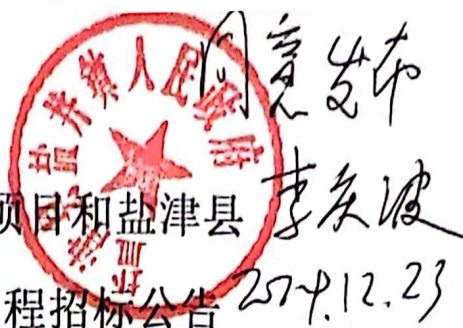 同意发布
项目和盐津县 李庆波
程招标公告 2024.12.23
盐津县盐井镇人民政府